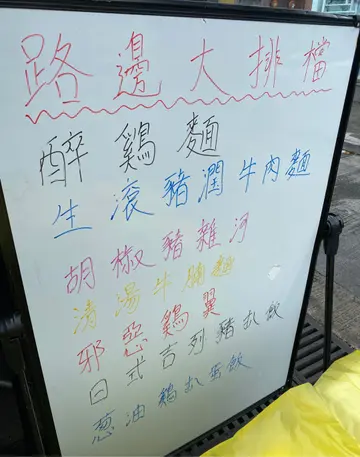 路邊大排檔
醉鷄麵
生滾豬潤牛肉麵
胡椒豬雜河
清湯牛腩麵
邪惡鷄翼
日式吉列豬扒飯
葱油鷄扒蛋飯